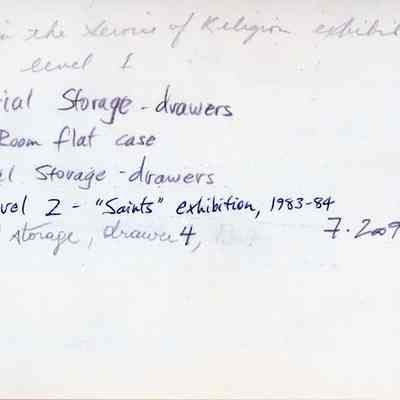 in the Service of Religion exhibi
level 1
ial Storage - drawers
Room flat case
al Storage - drawers
vel 2 - "Saints" exhibition, 1983-84
storage, drawer 4, 7.2009